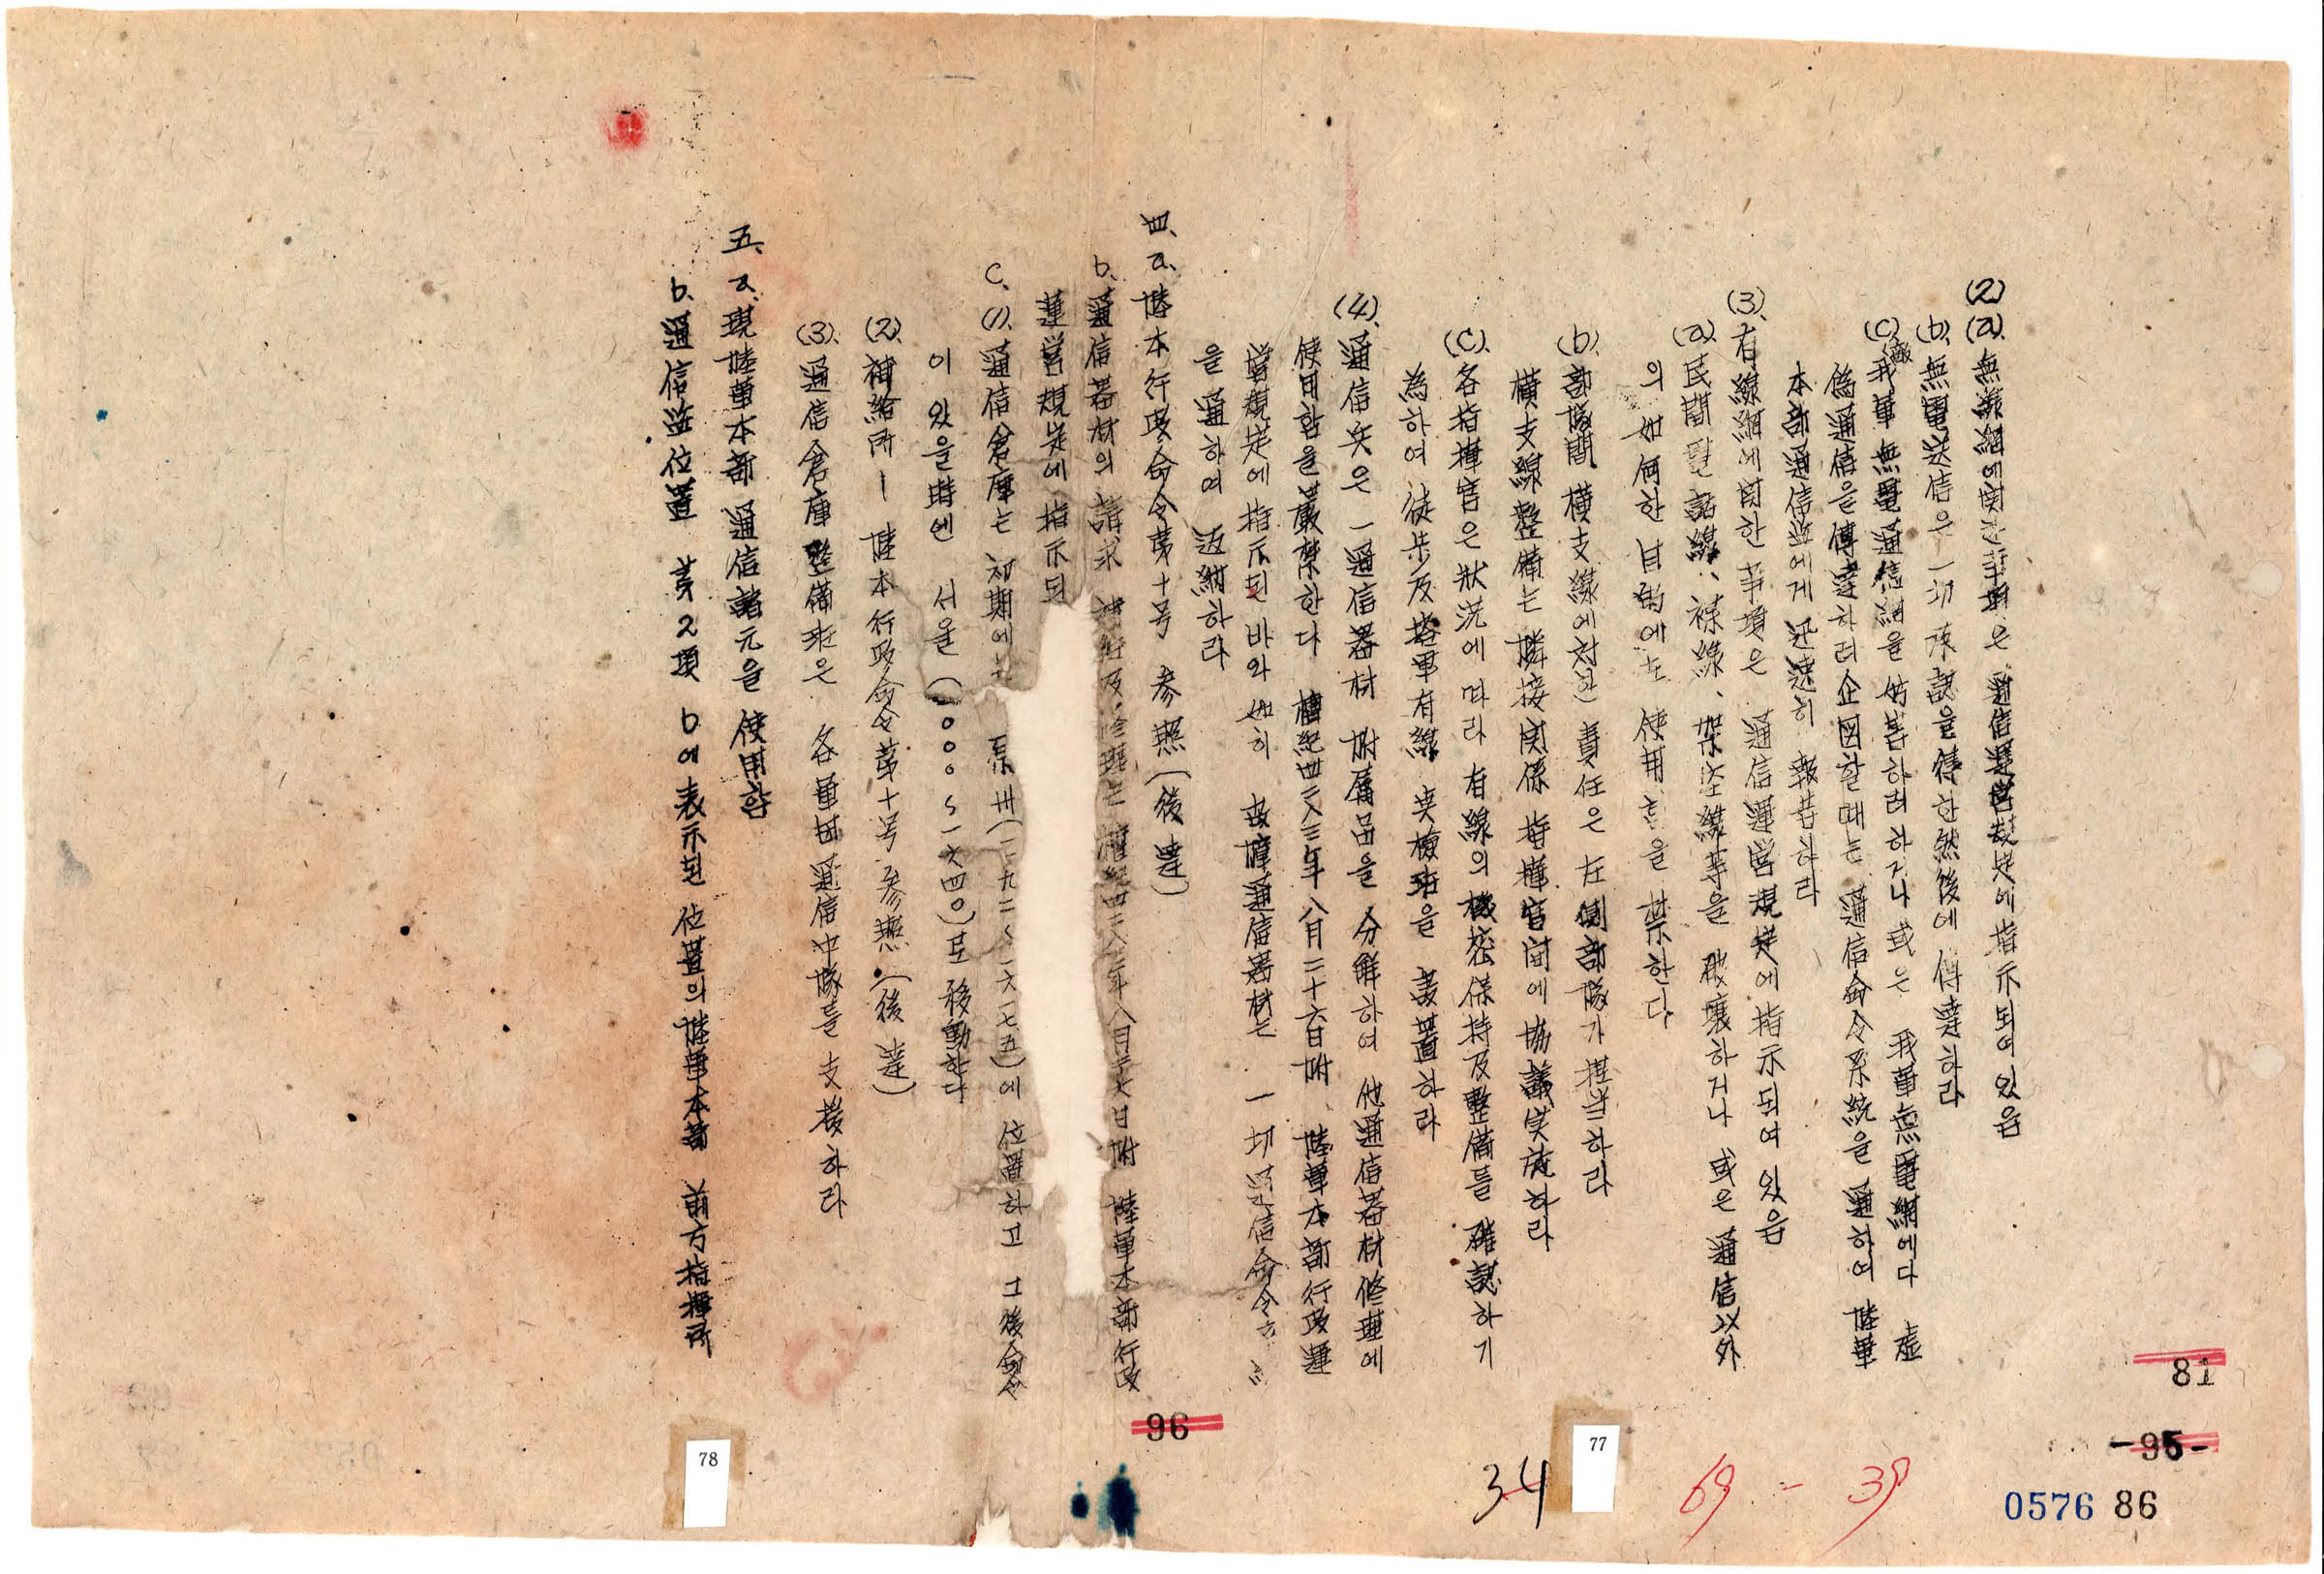 (2) (a)、無線網에関한 事項은 通信運営規定에 指示되여 있음
(b)、無電送信은 一切 承認을 得한 然後에 傳達하라
(c)、敵 我軍 無電通信網을 妨害하려하거나 或은 我軍無電網에다 虛
偽通信을 傳達하려 企図할때는 通信命令系統을 通하여 陸軍
本部通信監에게 迅速히 報告하라
(3)、有線網에 関한 事項은 通信運営規定에 指示되여 있음
(a)、民間電話線、裸線、架空線等을 破壞하거나 或은 通信以外
의 如何한 目的에도 使用함을 禁한다
(b)、部隊間 橫支線에 対한 責任은 左側部隊가 担当하라
橫支線整備는 隣接関係 指揮官間에 協議実施하라
(C)、各指揮官은 狀況에 따라 有線의 機密保持及整備를 確認하기
為하여 徒步及搭軍有線 点檢班을 設置하라
(4)、通信兵은 一通信器材 附属品을 分解하여 他通信器材修理에
使用함을 嚴禁한다 檀紀四二八三年八月二十六日附 陸軍本部行政運
営規定에 指示된 바와 如히 故障通信器材는 一切 通信命令
을 通하여 返納하라
四、a、陸本行政命令第十号 参照(後達)
b、通信器材의 請求 補給及修理는 檀紀四二八三年八月二十六日附 陸軍本部行政
運営規定에 指示되
C、(1)、通信倉庫는 初期에 (一一九二~一六七五)에 位置하고 그後命令
이 있을時엔 서울(一〇〇〇~一六四〇)로 移動한다
(2)、補給所ー陸本行政命令第十号参照(後達)
(3)、通信倉庫整備班은 各軍団通信中隊를 支援하라
五、a、現陸軍本部 通信諸元을 使用함
b、通信監位置 第2項 b에 表示된 位置의 陸軍本部 前方指揮所
81
-95-
96
0576 86
69 - 39
34
77
78